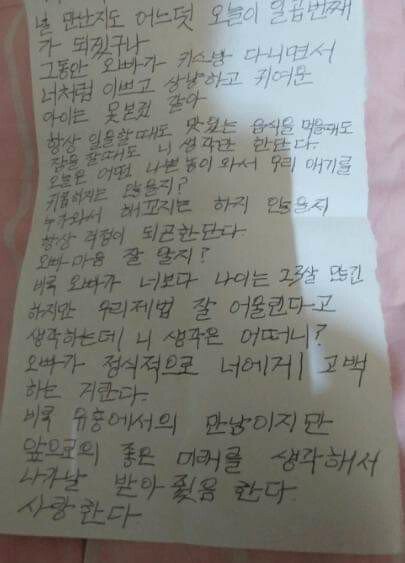 널 만난지도 어느덧 오늘이 일곱번째
가 되겠구나
그동안 오빠가 키스방 다니면서
너처럼 이쁘고 상냥하고 귀여운
아이는 못본것 같아
항상 일을할때도 맛있는 음식을 먹을때도
잠을 잘때도 니 생각만 한단다.
오늘은 어떤 나쁜 놈이 와서 우리 애기를
괴롭히지는 않을지?
누가와서 해꼬지는 하지 않을지
항상 걱정이 되곤한단다
오빠 마음 잘 알지?
비록 오빠가 너보다 나이는 23살 많긴
하지만 우리제법 잘 어울린다고
생각하는데 니 생각은 어떠니?
오빠가 정식적으로 너에게 고백
하는 거란다.
비록 유흥에서의 만남이지만
앞으로의 좋은 미래를 생각해서
나가날 받아 줬음 한다
사랑한다